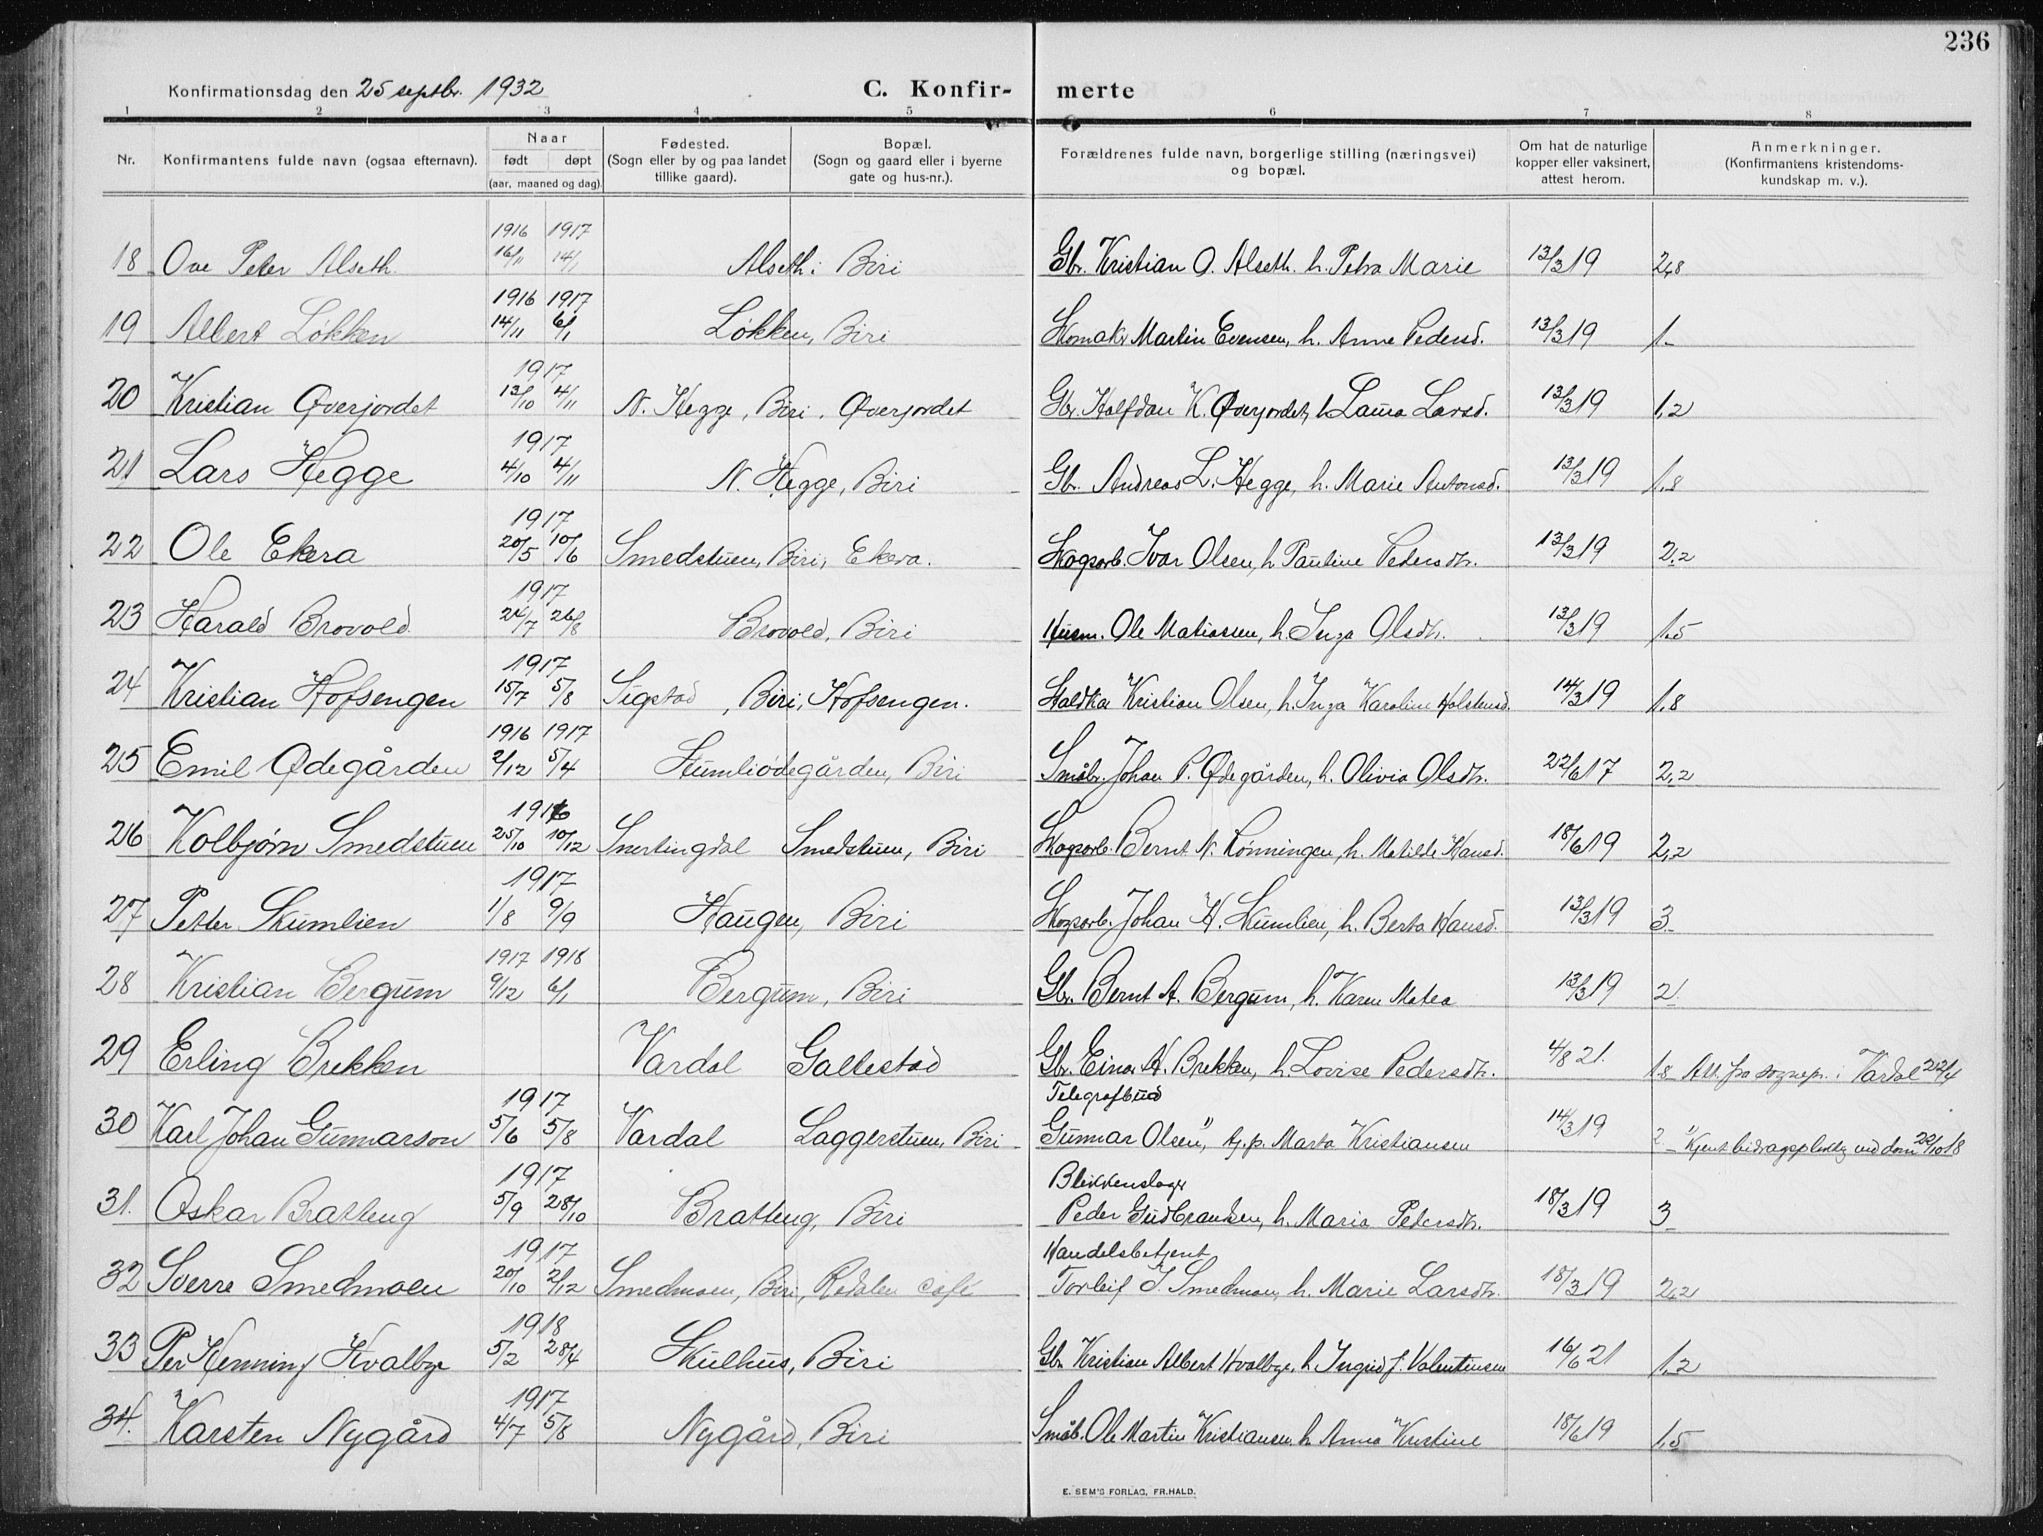 236
Konfirmationsdag den 25 septbr. 1932
C. Konfir- merte
1 2 3 4 5 6 7 8
Nr. Konfirmantens fulde navn (ogsaa efternavn). Naar født døpt (aar, maaned og dag). Fødested. (Sogn eller by og paa landet tillike gaard). Bopæl. (Sogn og gaard eller i byerne gate og hus-nr.). Forældrenes fulde navn, borgerlige stilling (næringsvei) og bopæl. Om hat de naturlige kopper eller vaksinert, attest herom. Anmerkninger. (Konfirmantens kristendoms- kundskap m. v.).
1916 1917
18 Ove Peter Alseth 16/11 14/1 Alseth, Biri Gbr. Kristian O. Alseth. h. Petra Marie 13/3 19 2,8
1916 1917
19 Albert Løkken 14/11 6/1 Løkken, Biri Skomaker Martin Evensen, h. Anne Pedersd. 13/3 19 1-
1917
20 Kristian Øverjordet 13/10 4/11 N. Hegge, Biri. Øverjordet Gbr. Halfdan K. Øverjordet, h Laura Larsd. 13/3 19 1,2
1917
21 Lars Hegge 4/10 4/11 N. Hegge, Biri Gb. Andreas L. Hegge, h. Marie Antonsd. 13/3 19 1,8
1917
22 Ole Ekera 20/5 10/6 Smedstuen, Biri, Ekera. Skogsarb. Ivar Olsen, h Pauline Pedersdtr. 13/3 19 2,2
1917
23 Harald Brovold 24/7 26/8 Brovold, Biri Husm. Ole Matiassen, h. Inga Olsdtr. 13/3 19 1,5
1917
24 Kristian Hofsengen 15/7 5/8 Sigstad, Biri, Hofsengen. Kristian Olsen, h. Inga Karoline Holstensd. 14/3 19 1,8
1916 1917
25 Emil Ødegården 2/12 5/4 Skumliødegården, Biri Småbr. Johan P. Ødegården, h. Olivia Olsdtr. 22/6 17 2,2
1916
26 Kolbjørn Smedstuen 25/10 10/12 Snertingdal Smedstuen, Biri Skogsarb. Bernt N. Rønningen, h. Matilde Hansd. 18/6 19 2,2
1917
27 Petter Skumlien 1/8 9/9 Haugen, Biri Skogsarb. Johan H. Skumlien, h. Berta Hansd. 13/3 19 3
1917 1918
28 Kristian Bergum 9/12 6/1 Bergum, Biri Gbr. Bernt A. Bergum, h. Karen Matea 13/3 19 2
29 Erling Brekken Vardal Gallestad Gbr. Einar H. Brekken, h. Lovise Pedersdtr. 4/8 21. 1,8 Att. fra sognepr. i Vardal 22/4
1917 Telegrafbud
30 Karl Johan Gunnarson 5/6 5/8 Vardal Laggerstuen, Biri Gunnar Olsen", Marta Kristiansen 14/3 19 2 "Kjent bidragspliktig ved dom 22/10 18
1917 Blikkenslager
31. Oskar Bratteng 5/9 28/10 Bratteng, Biri Peder Gudbrandsen, h. Maria Pedersdtr. 18/3 19 3
1917 Handelsbetjent
32 Sverre Smedmoen 20/10 2/12 Smedmoen, Biri, Redalen café Torleif J. Smedmoen, h. Marie Larsdtr. 18/3 19 2,2
1918
33 Per Henning Hvalbye 5/2 28/4 Skulhus, Biri Gbr. Kristian Albert Hvalbye, h Ingrid f. Valentinsen 16/6 21 1,2
1917
34. Karsten Nygård 4/7 5/8 Nygård, Biri Småb. Ole Martin Kristiansen h Anna Kristine 18/6 19 1,5
E. SEM'S FORLAG, FR.HALD.